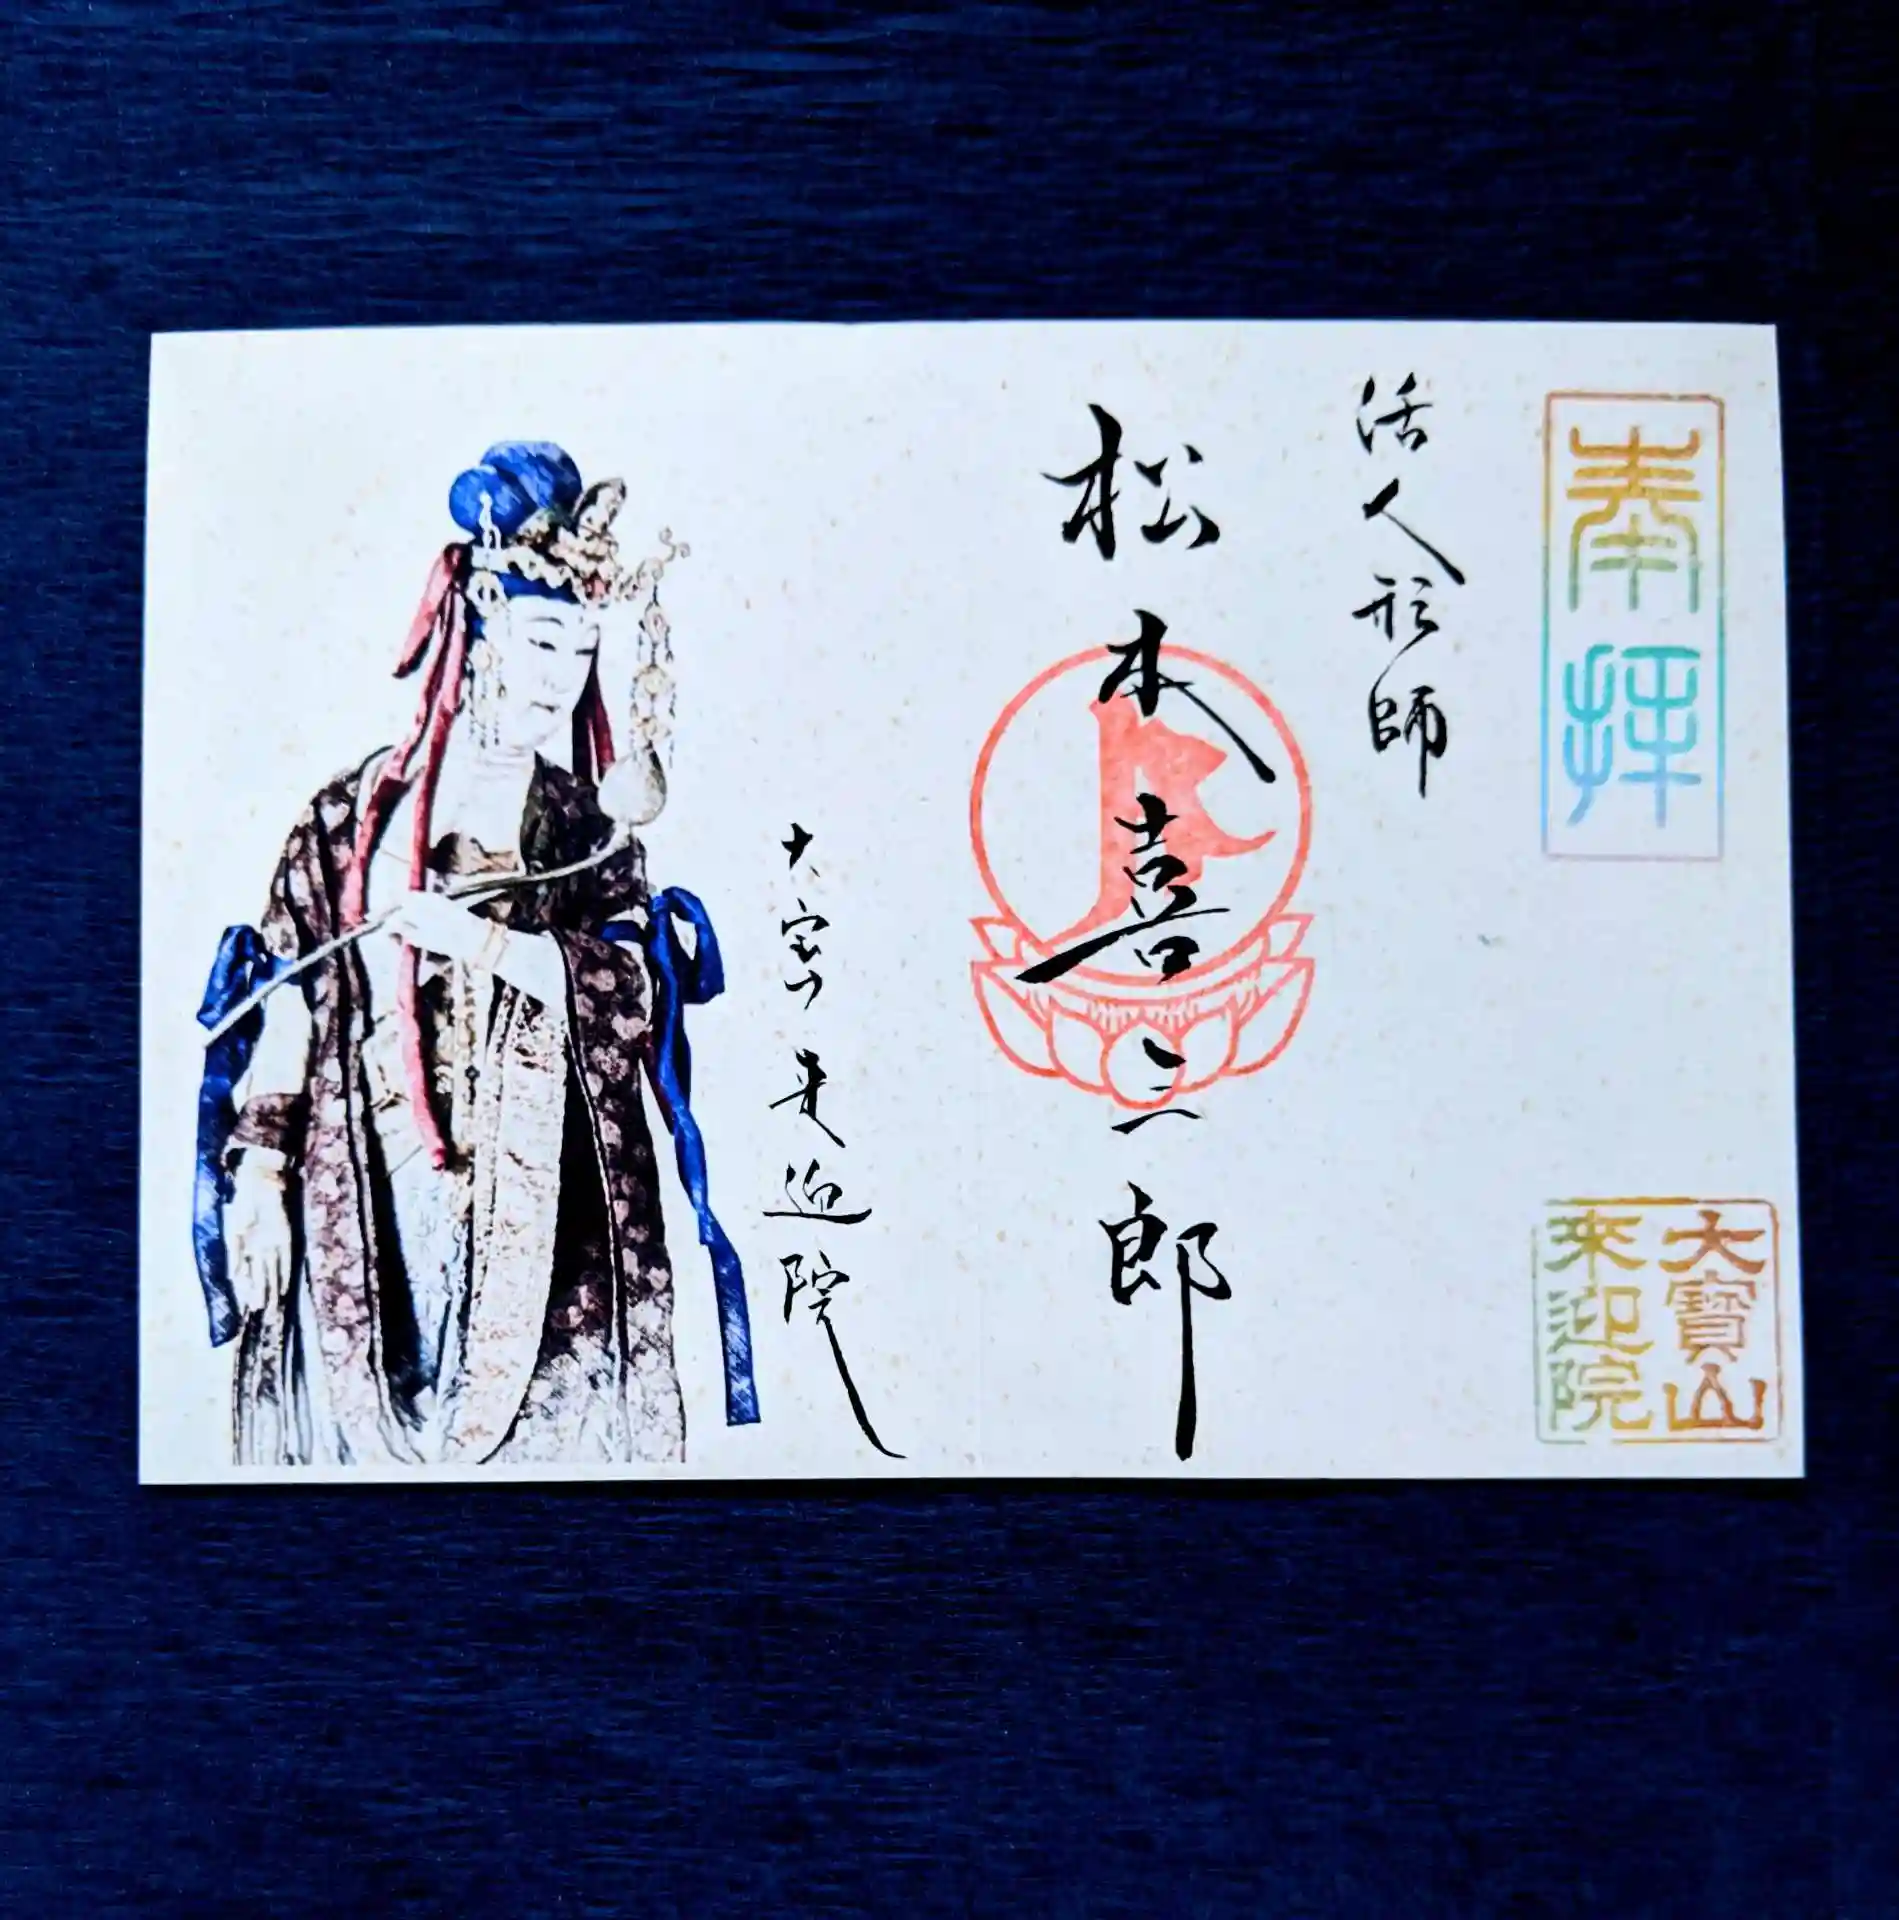 奉拝
大寶山
来迎院
活人形師
松本喜三郎
大宝山来迎院